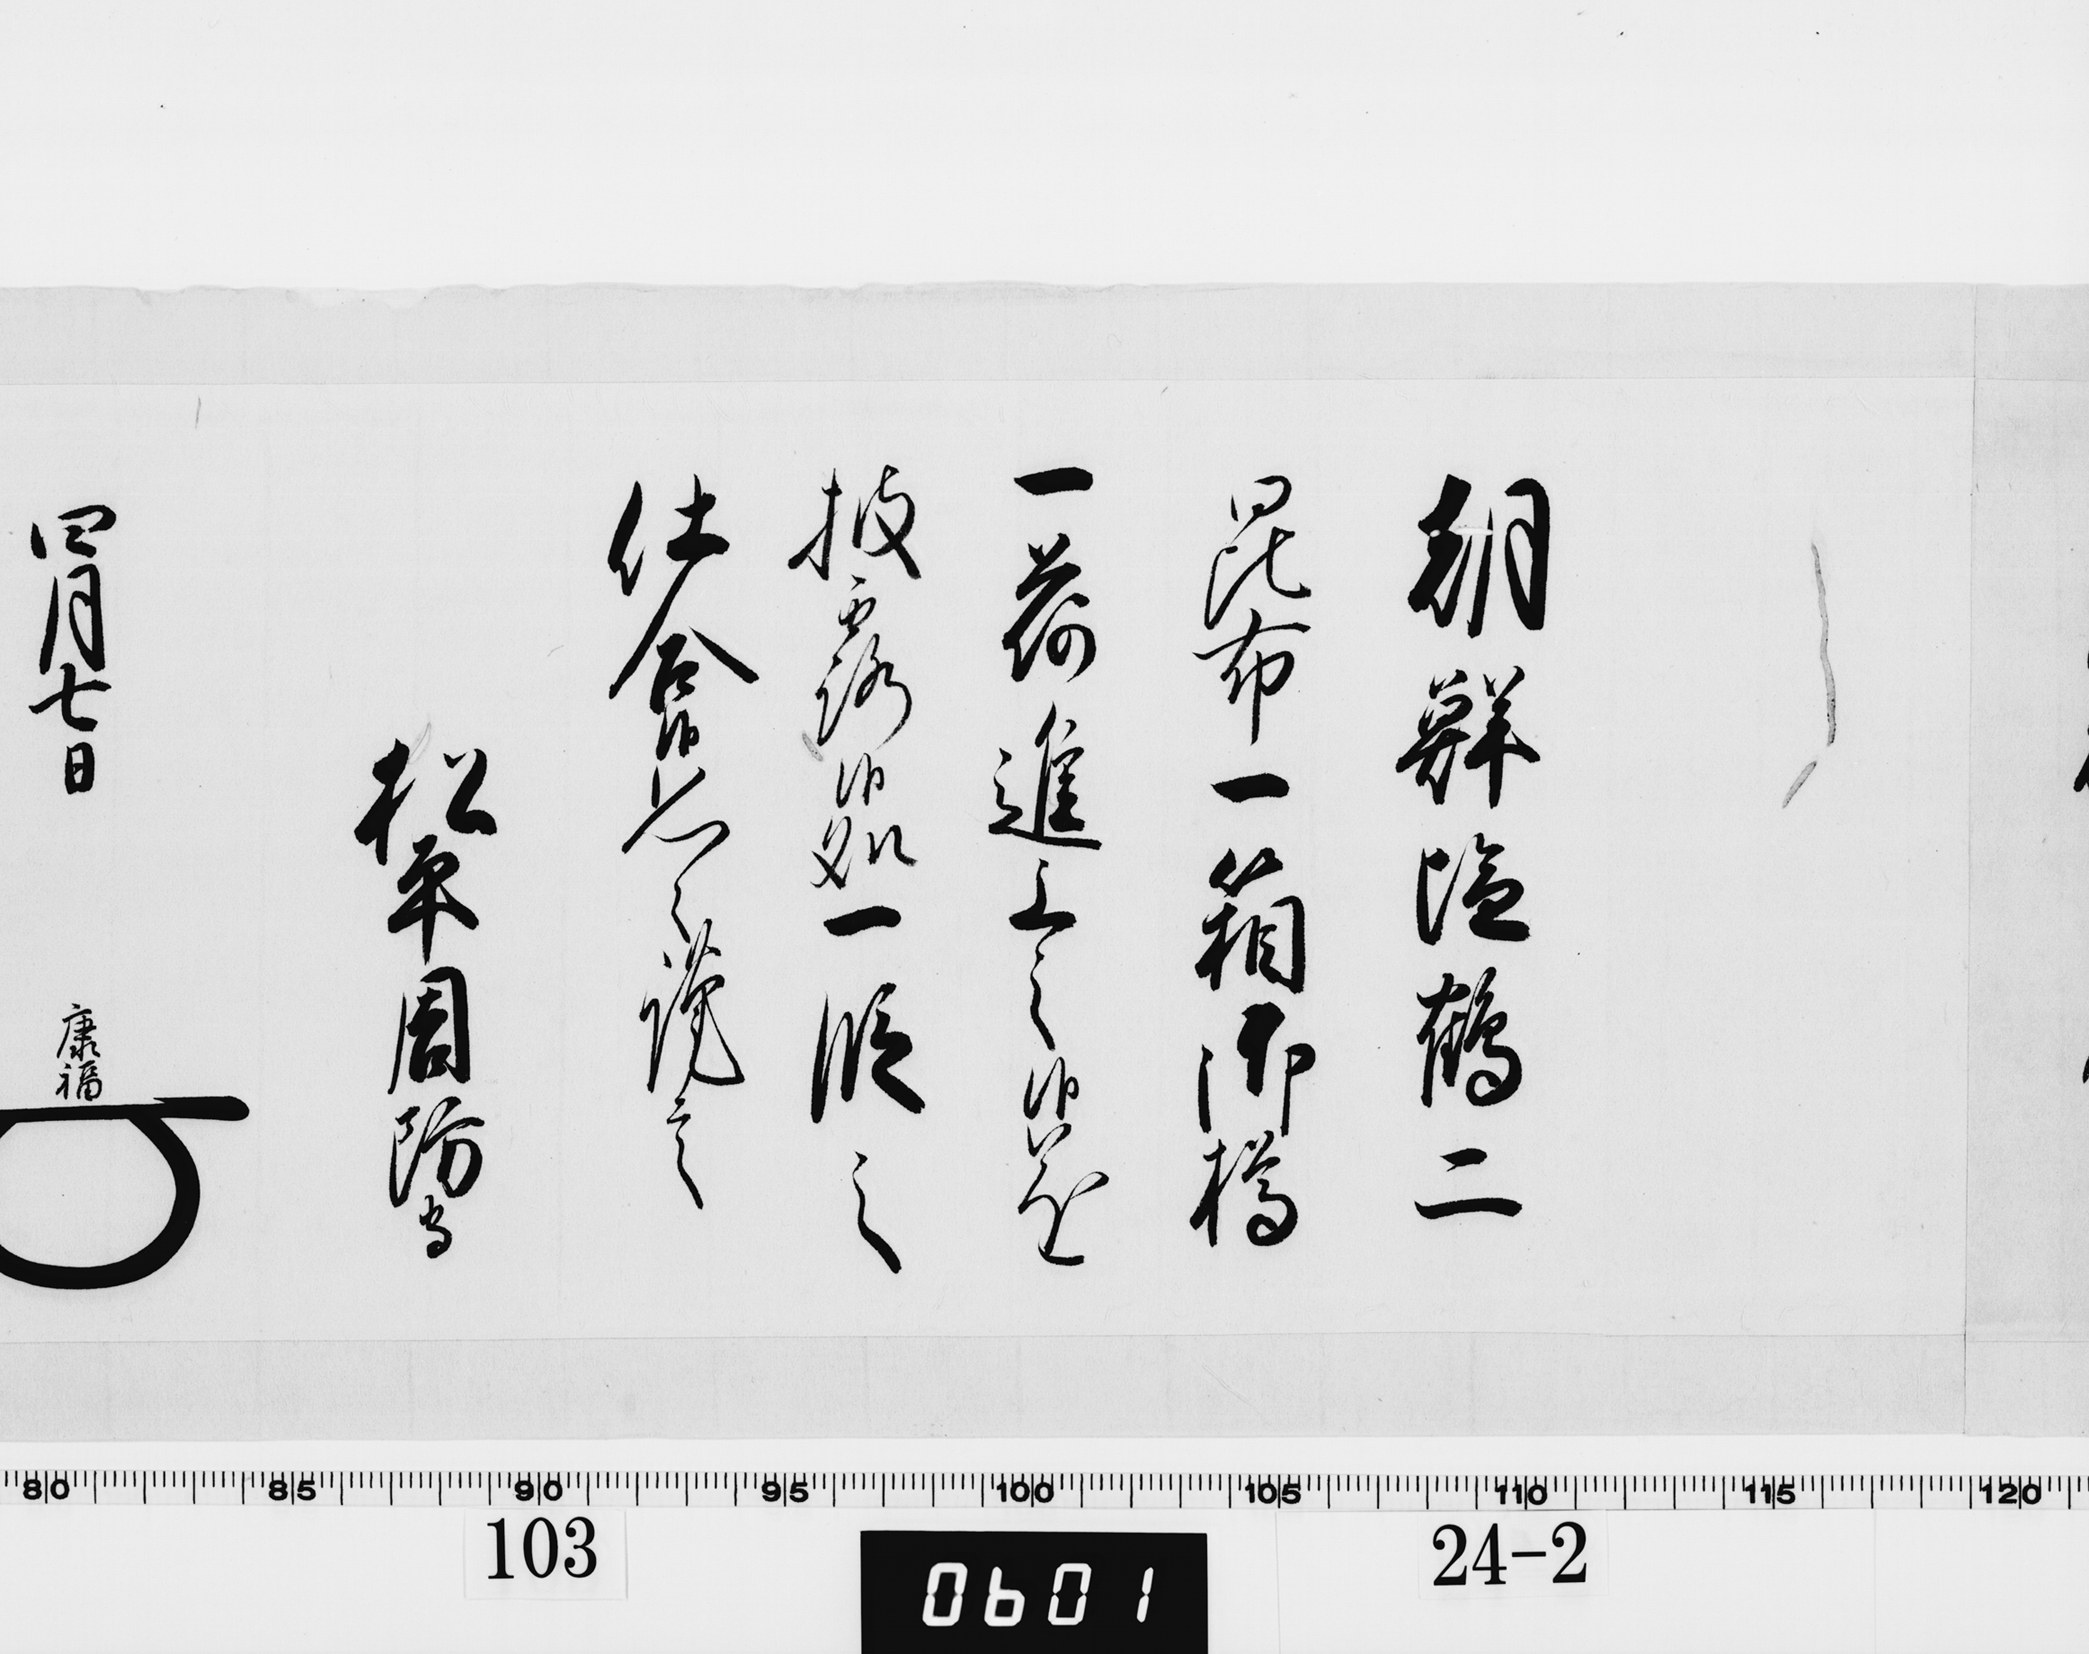 朝鮮塩鶴二
昆布一箱御樽
一荷進上之候遂
披露候処一段之
仕合候恐々謹言
松平周防守
四月七日
康福
80 85 90 95 100 105 110 115 120
103
0601
24-2